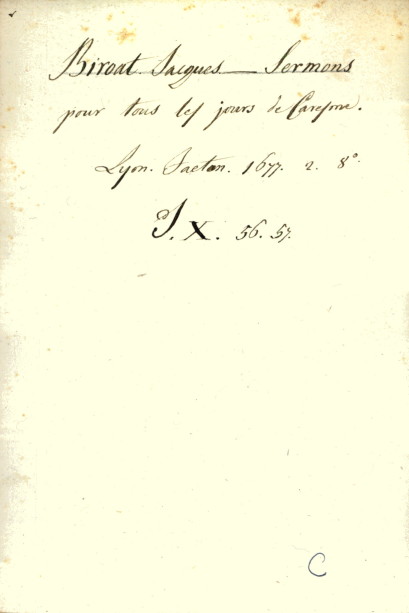 Biroat Jacques — Sermons
pour tous les jours de Caresme.
Lyon. Facton. 1677. 2. 8°.
J. X. 56. 57.
C